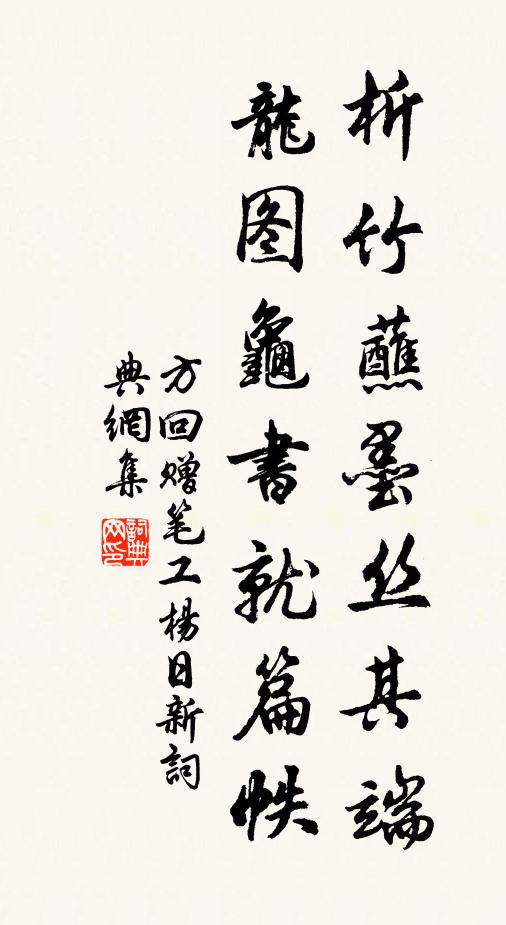 析竹蘸墨丝其端
龍图龜書就篇帙
方回赠笔工楊日新詞
典網集
詞典网印